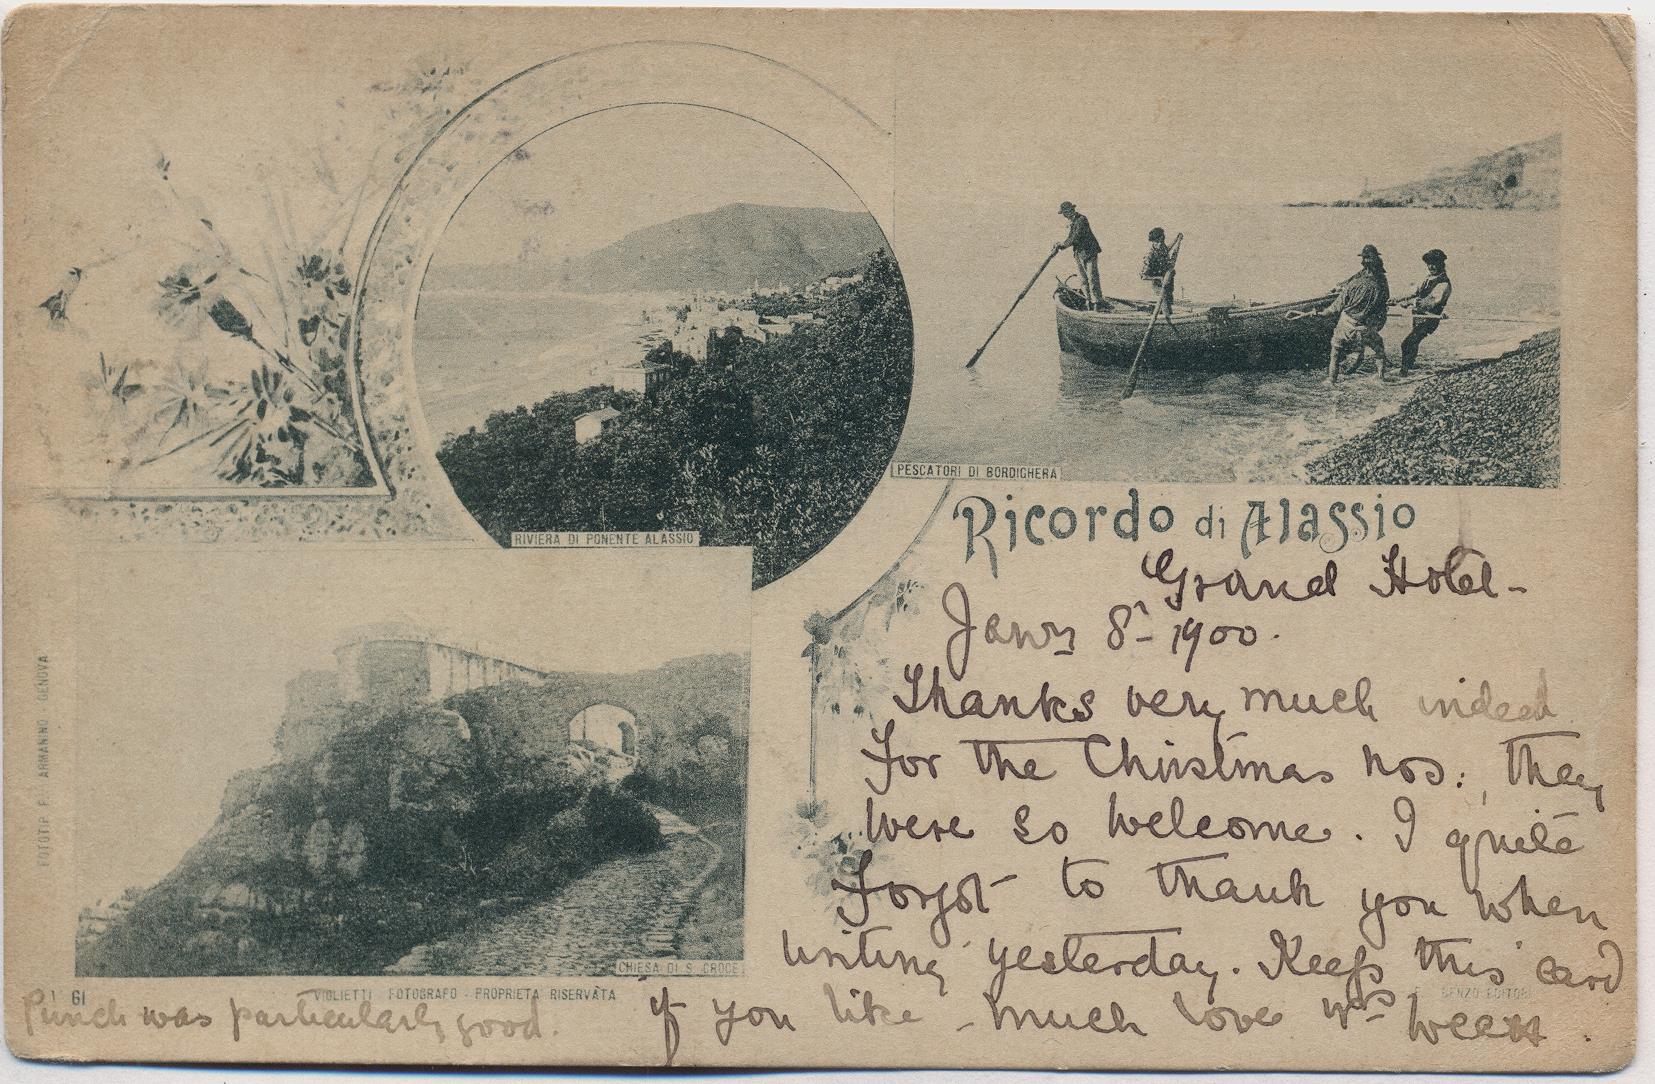 PESCATORI DI BORDIGHERA
RIVIERA DI PONENTE ALASSIO
Ricordo di Alassio
CHIESA DI S. CROCE
FOTOTIP. F. ARMANINO GENOVA
VIGLIETTI FOTOGRAFO - PROPRIETA RISERVATA
BENZO EDITORI
Grand Hotel -
Janry 8th 1900.
Thanks very much indeed
For the Christmas nos: they
were so welcome. I quite
Forgot to thank you when
writing yesterday. Keep this card
if you like - much love
Punch was particularly good.